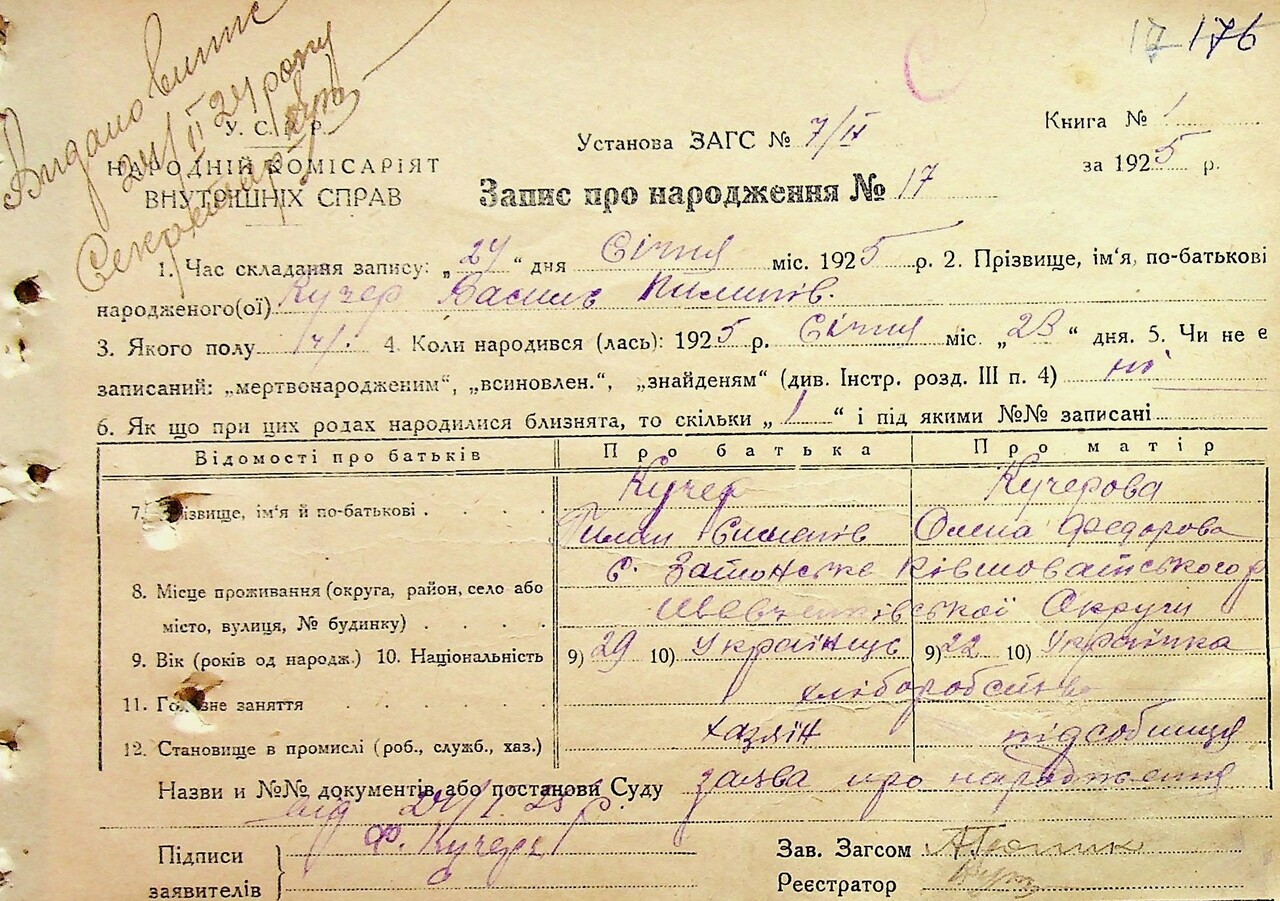 17 176
Видано випис
24/II 24 року
Секретар
У. С. Р. Р.
НАРОДНІЙ КОМІСАРІЯТ
ВНУТРІШНІХ СПРАВ
Установа ЗАГС № 7/ІХ
Книга № 1
за 1925 р.
Запис про народження № 17
1. Час складання запису: „24“ дня Січня міс. 1925 р. 2. Прізвище, ім'я, по-батькові
народженого(ої) Кучер Василь Пилипів.
3. Якого полу Ч. 4. Коли народився (лась): 1925 р. Січня міс. „23“ дня. 5. Чи не є
записаний: „мертвонародженим“, „всиновлен.“, „знайденям“ (див. Інстр. розд. III п. 4) ні
6. Як що при цих родах народилися близнята, то скільки „1“ і під якими №№ записані
Відомості про батьків Про батька Про матір
Кучер Кучерова
7. Прізвище, ім'я й по-батькові Пилип Олена Федорова
8. Місце проживання (округа, район, село або с. Затонське Ківшоватського р
місто, вулиця, № будинку) Шевченківської Округи
9. Вік (років од народж.) 10. Національність 9) 29 10) Українець 9) 22 10) Українка
11. Головне заняття хліборобство
12. Становище в промислі (роб., служб., хаз.) хазяїн підсобниця
Назви и №№ документів або постанови Суду заява про народження
від 24/I. 25 р.
Підписи
заявителів
Ф. Кучерь
Зав. Загсом
Реєстратор